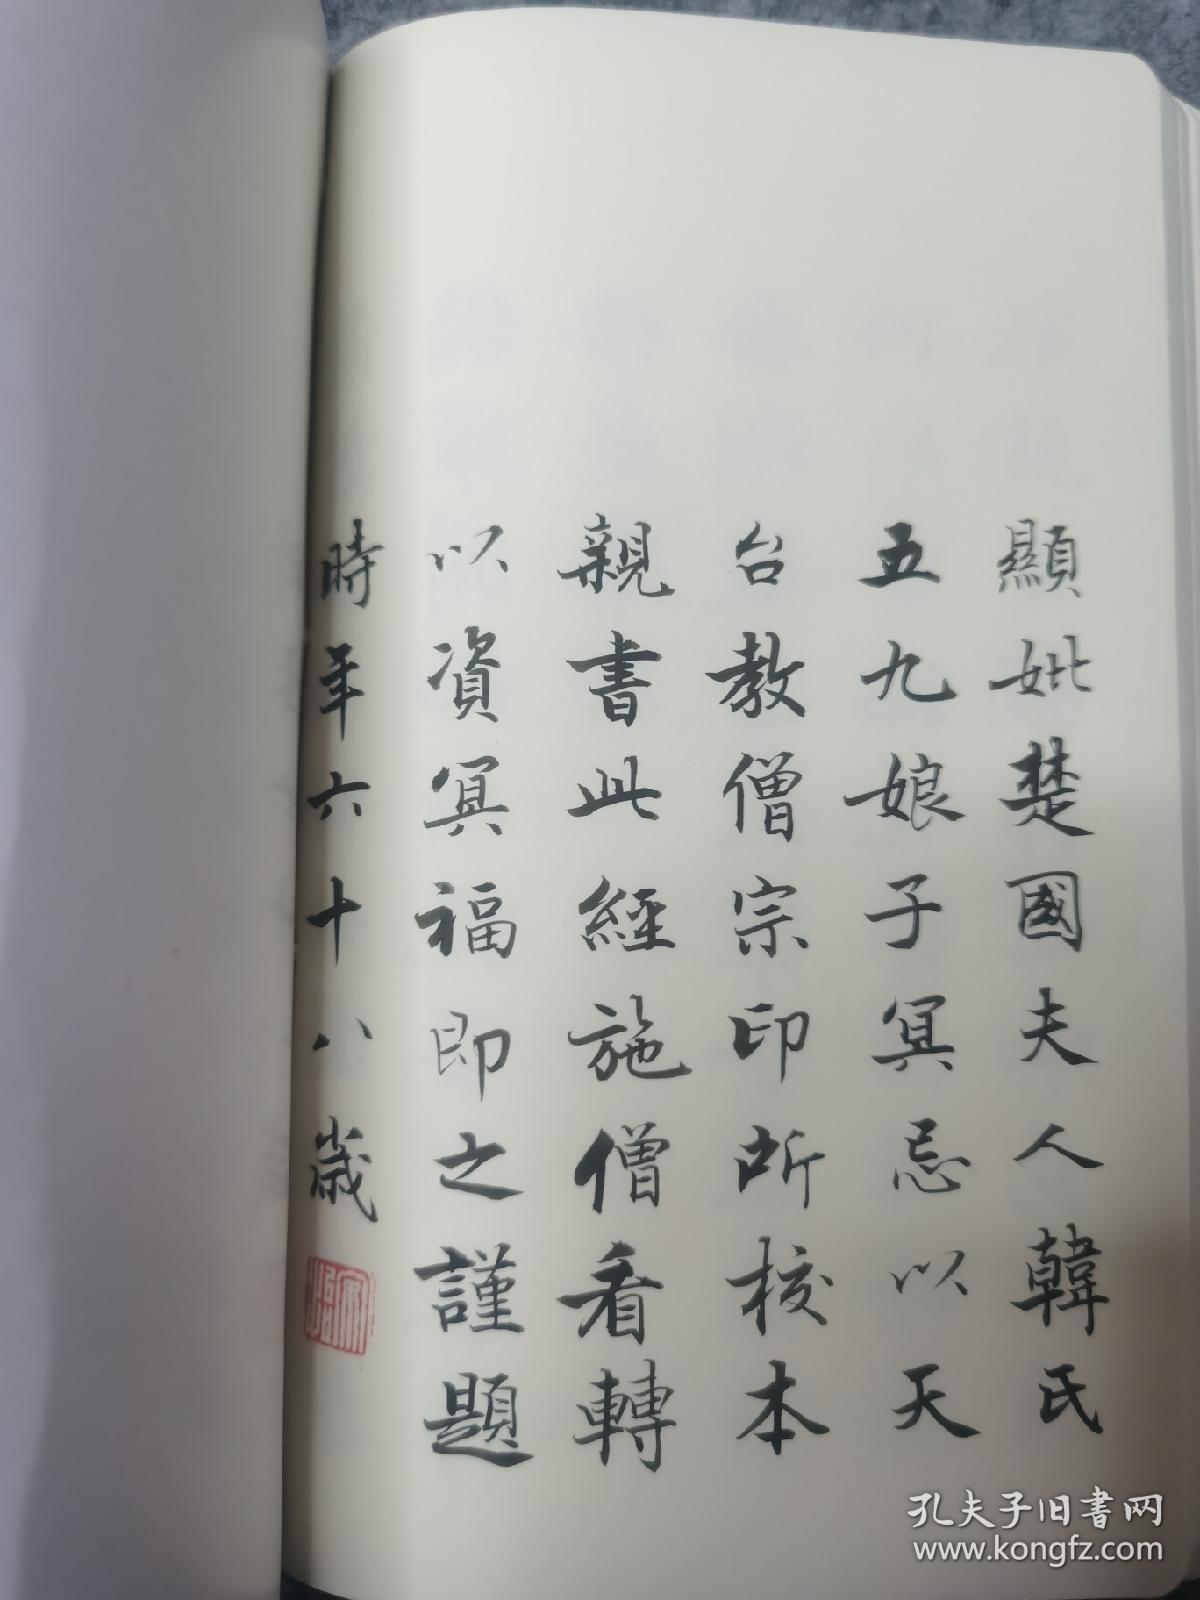 顯妣楚國夫人韓氏
五九娘子冥忌以天
台教僧宗印所校本
親書此經施僧看轉
以資冥福即之謹題
時年六十八歲
孔夫子旧書网
www.kongfz.com